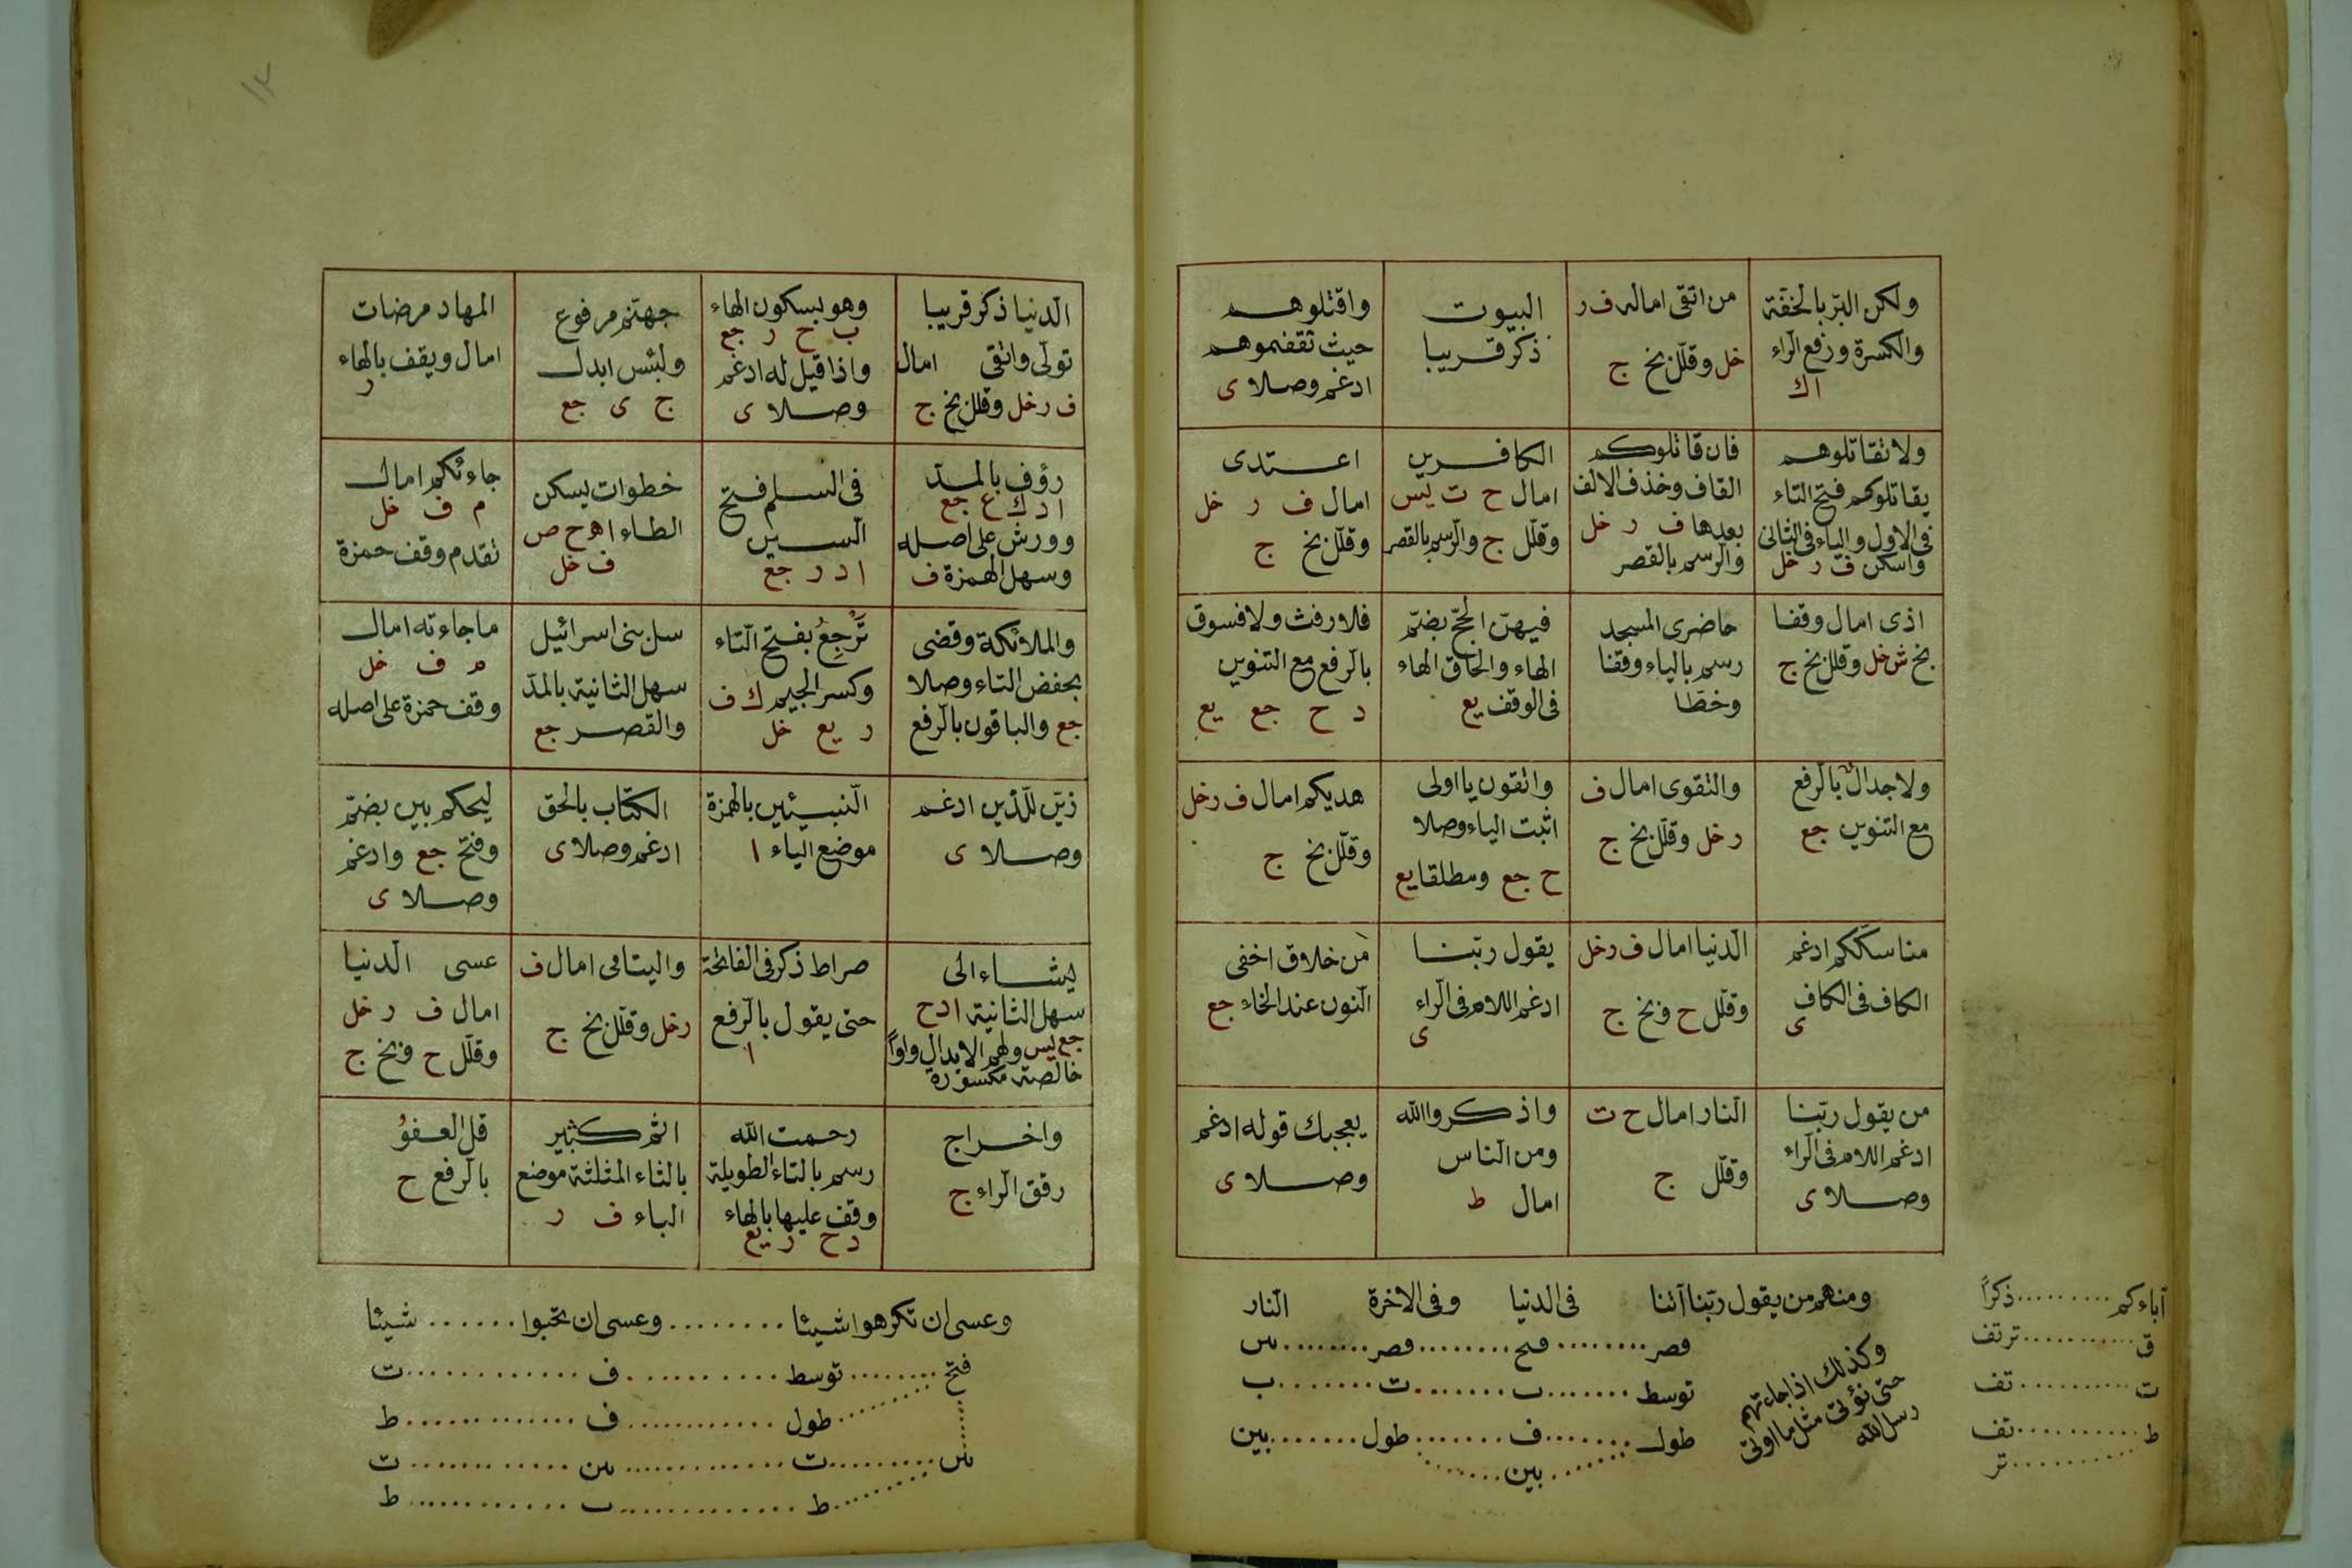 ولكن البرّ بالخفّة
والكسرة ورفع الرّاء
اك
من اتقى اماله ف ر
خل وقلّل بخ ج
البيوت
ذكر قريبا
واقتلوهم
حيث ثقفتموهم
ادغم وصلا ى
ولا تقاتلوهم
يقاتلوكم فتح التاء
فى الاول والياء فى الثانى
واسكن ف ر خل
فان قاتلوكم
القاف وحذف الالف
بعدها ف ر خل
والرسم بالقصر
الكافرين
امال ح ت يس
وقلّل ج والرسم بالقصر
اعتدى
امال ف ر خل
وقلّل بخ ج
اذى امال وقفا
بخ ش خل وقلل بخ ج
حاضرى المسجد
رسم بالياء وقفا
وخطّا
فيهنّ الحجّ بضمّ
الهاء والحاق الهاء
فى الوقف يع
فلا رفث ولا فسوق
بالرفع مع التنوين
د ح جع يع
ولا جدال بالرفع
مع التنوين جع
والتقوى امال ف
ر خل وقلّل بخ ج
واتقون يا اولى
اثبت الياء وصلا
ح جع ومطلقا يع
هديكم امال ف ر خل
وقلّل بخ ج
مناسككم ادغم
الكاف فى الكاف
ى
الدنيا امال ف ر خل
وقلّل ح وبخ ج
يقول ربّنا
ادغم اللام فى الرّاء
ى
من خلاق اخفى
النون عند الخاء جع
من يقول ربّنا
ادغم اللام فى الرّاء
وصلا ى
النار امال ح ت
وقلّل ج
واذكروا الله
ومن الناس
امال ط
يعجبك قوله ادغم
وصلا ى
ومنهم من يقول ربّنا آتنا فى الدنيا وفى الاخرة النار
قصر ......... فتح ......... قصر ......... س
توسط ....... ب ....... ت ....... ب
طول ....... ف ....... طول ....... بين
بين
وكذلك اذا جاءتهم
حتى نؤتى مثل ما اوتى
رسل الله
آباءكم ......... ذكراً
ق ........... ترتف
ت .......... تف
ط .......... تف
......... تر
الدنيا ذكر قريبا
تولّى واتقى امال
ف ر خل وقلل بخ ج
وهو بسكون الهاء
ب ح ر جع
واذا قيل له ادغم
وصلا ى
جهنّم مرفوع
ولبئس ابدل
ج ى جع
المهاد مرضات
امال ويقف بالهاء
ر
رؤف بالمدّ
ا د ك ع جع
وورش على اصله
وسهل الهمزة ف
فى السلم فتح
السين
ا د ر جع
خطوات يسكن
الطاء ا ه ح ص
ف خل
جاءتكم امال
م ف خل
تقدم وقف حمزة
والملائكة وقضى
بخفض التاء وصلا
جع والباقون بالرفع
تَرْجِعُ بفتح التاء
وكسر الجيم ك ف
ر يع خل
سل بنى اسرائيل
سهل الثانية بالمدّ
والقصر جع
ما جاءته امال
م ف خل
وقف حمزة على اصله
زيّن للّذين ادغم
وصلا ى
النبيئين بالهمزة
موضع الياء ا
الكتاب بالحق
ادغم وصلا ى
ليحكم بين بضمّ
وفتح جع وادغم
وصلا ى
يشاء الى
سهل الثانية ا د ح
جع يس ولهم الابدال واواً
خالصة مكسورة
صراط ذكر فى الفاتحة
حتى يقول بالرفع
ا
واليتامى امال ف
ر خل وقلّل بخ ج
عسى الدنيا
امال ف ر خل
وقلّل ح وبخ ج
واخراج
رقق الراء ج
رحمت الله
رسم بالتاء الطويلة
وقف عليها بالهاء
د ح ر يع
اثم كثير
بالثاء المثلثة موضع
الباء ف ر
قل العفوُ
بالرفع ح
وعسى ان تكرهوا شيئا ........ وعسى ان تحبوا ...... شيئا
فتح ........ توسط ........... ف ............ ت
طول ............ ف ............. ط
س ......... ت ............. س ........... ت
ط ............. ب ............ ط
١٢